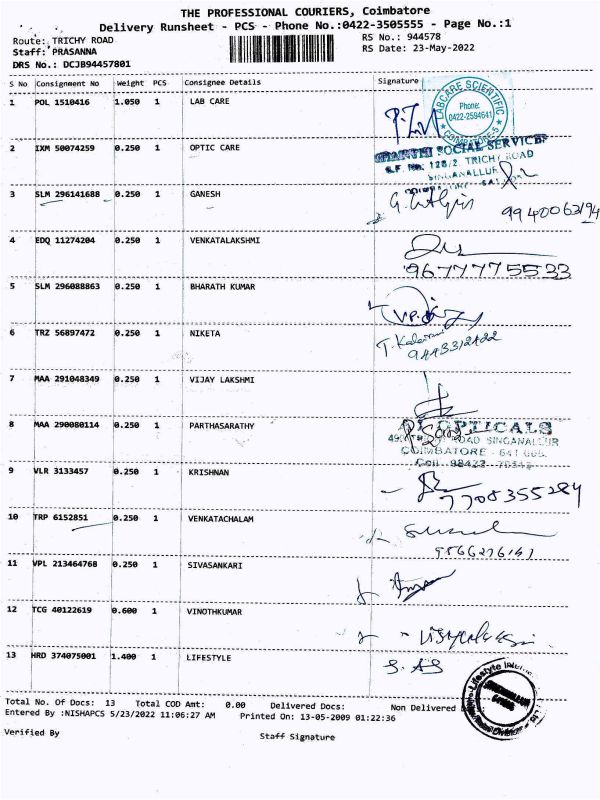 THE PROFESSIONAL COURIERS, Coimbatore
Delivery Runsheet - PCS - Phone No.:0422-3505555 - Page No.:1
Route: TRICHY ROAD
RS No.: 944578
Staff: PRASANNA
RS Date: 23-May-2022
DRS No.: DCJB94457801
S No Consignment No Weight PCS Consignee Details Signature
1 POL 1510416 1.050 1 LAB CARE
LABCARE SCIENTIFIC
Phone:
0422-2594641
COIMBATORE-5
2 IXM 50074259 0.250 1 OPTIC CARE
GHANTHI SOCIAL SERVICE
S.F. No. 128/2, TRICHY ROAD
SINGANALLUR
3 SLM 296141688 0.250 1 GANESH
9940063194
4 EDQ 11274204 0.250 1 VENKATALAKSHMI
9677775533
5 SLM 296088863 0.250 1 BHARATH KUMAR
6 TRZ 56897472 0.250 1 NIKETA
9443312422
7 MAA 291048349 0.250 1 VIJAY LAKSHMI
8 MAA 290080114 0.250 1 PARTHASARATHY
OPTICALS
ROAD SINGANALLUR
COIMBATORE - 641 005.
Cell : 98423
9 VLR 3133457 0.250 1 KRISHNAN
7708355284
10 TRP 6152851 0.250 1 VENKATACHALAM
11 VPL 213464768 0.250 1 SIVASANKARI
12 TCG 40122619 0.600 1 VINOTHKUMAR
13 HRD 374075001 1.400 1 LIFESTYLE
S. AS
Lifestyle
Total No. Of Docs: 13 Total COD Amt: 0.00 Delivered Docs: Non Delivered
Entered By :NISHAPCS 5/23/2022 11:06:27 AM Printed On: 13-05-2009 01:22:36
Verified By Staff Signature